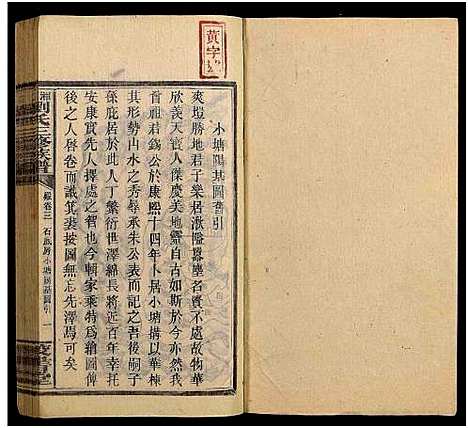 黃字
小塘陽基圖舊引
爽塏勝地君子樂居湫隘囂塵名賢不處故物華
欣羨天寶人傑慶美地靈自古如斯於今亦然我
首祖君錫公於康熙十四年卜居小塘搆以華棟
其形勢山水之秀尋承朱公表而記之以後嗣子
孫庇居於此人丁繁衍世澤綿長將近百年幸托
安康實先人擇處之智也今輯家乘特為繪圖俾
後之人啓卷而識箕裘按圖無忘先澤焉可矣
劉氏三修族譜
卷三 石 房小塘陽基圖引 一
堂